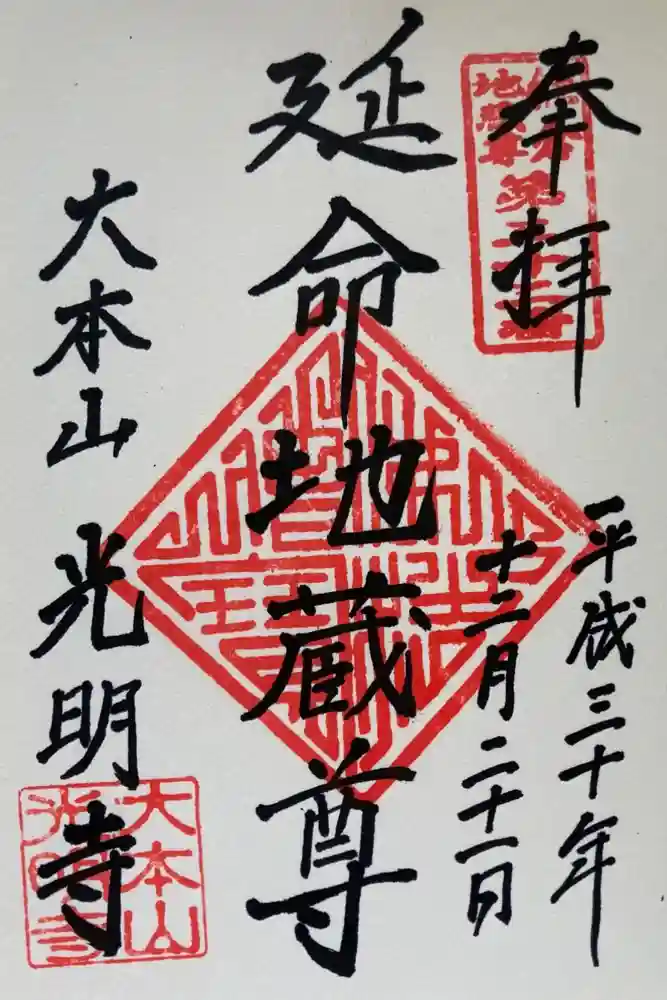 奉拝
平成三十年
十二月二十一日
延命地蔵尊
大本山 光明寺
大本山
光明寺